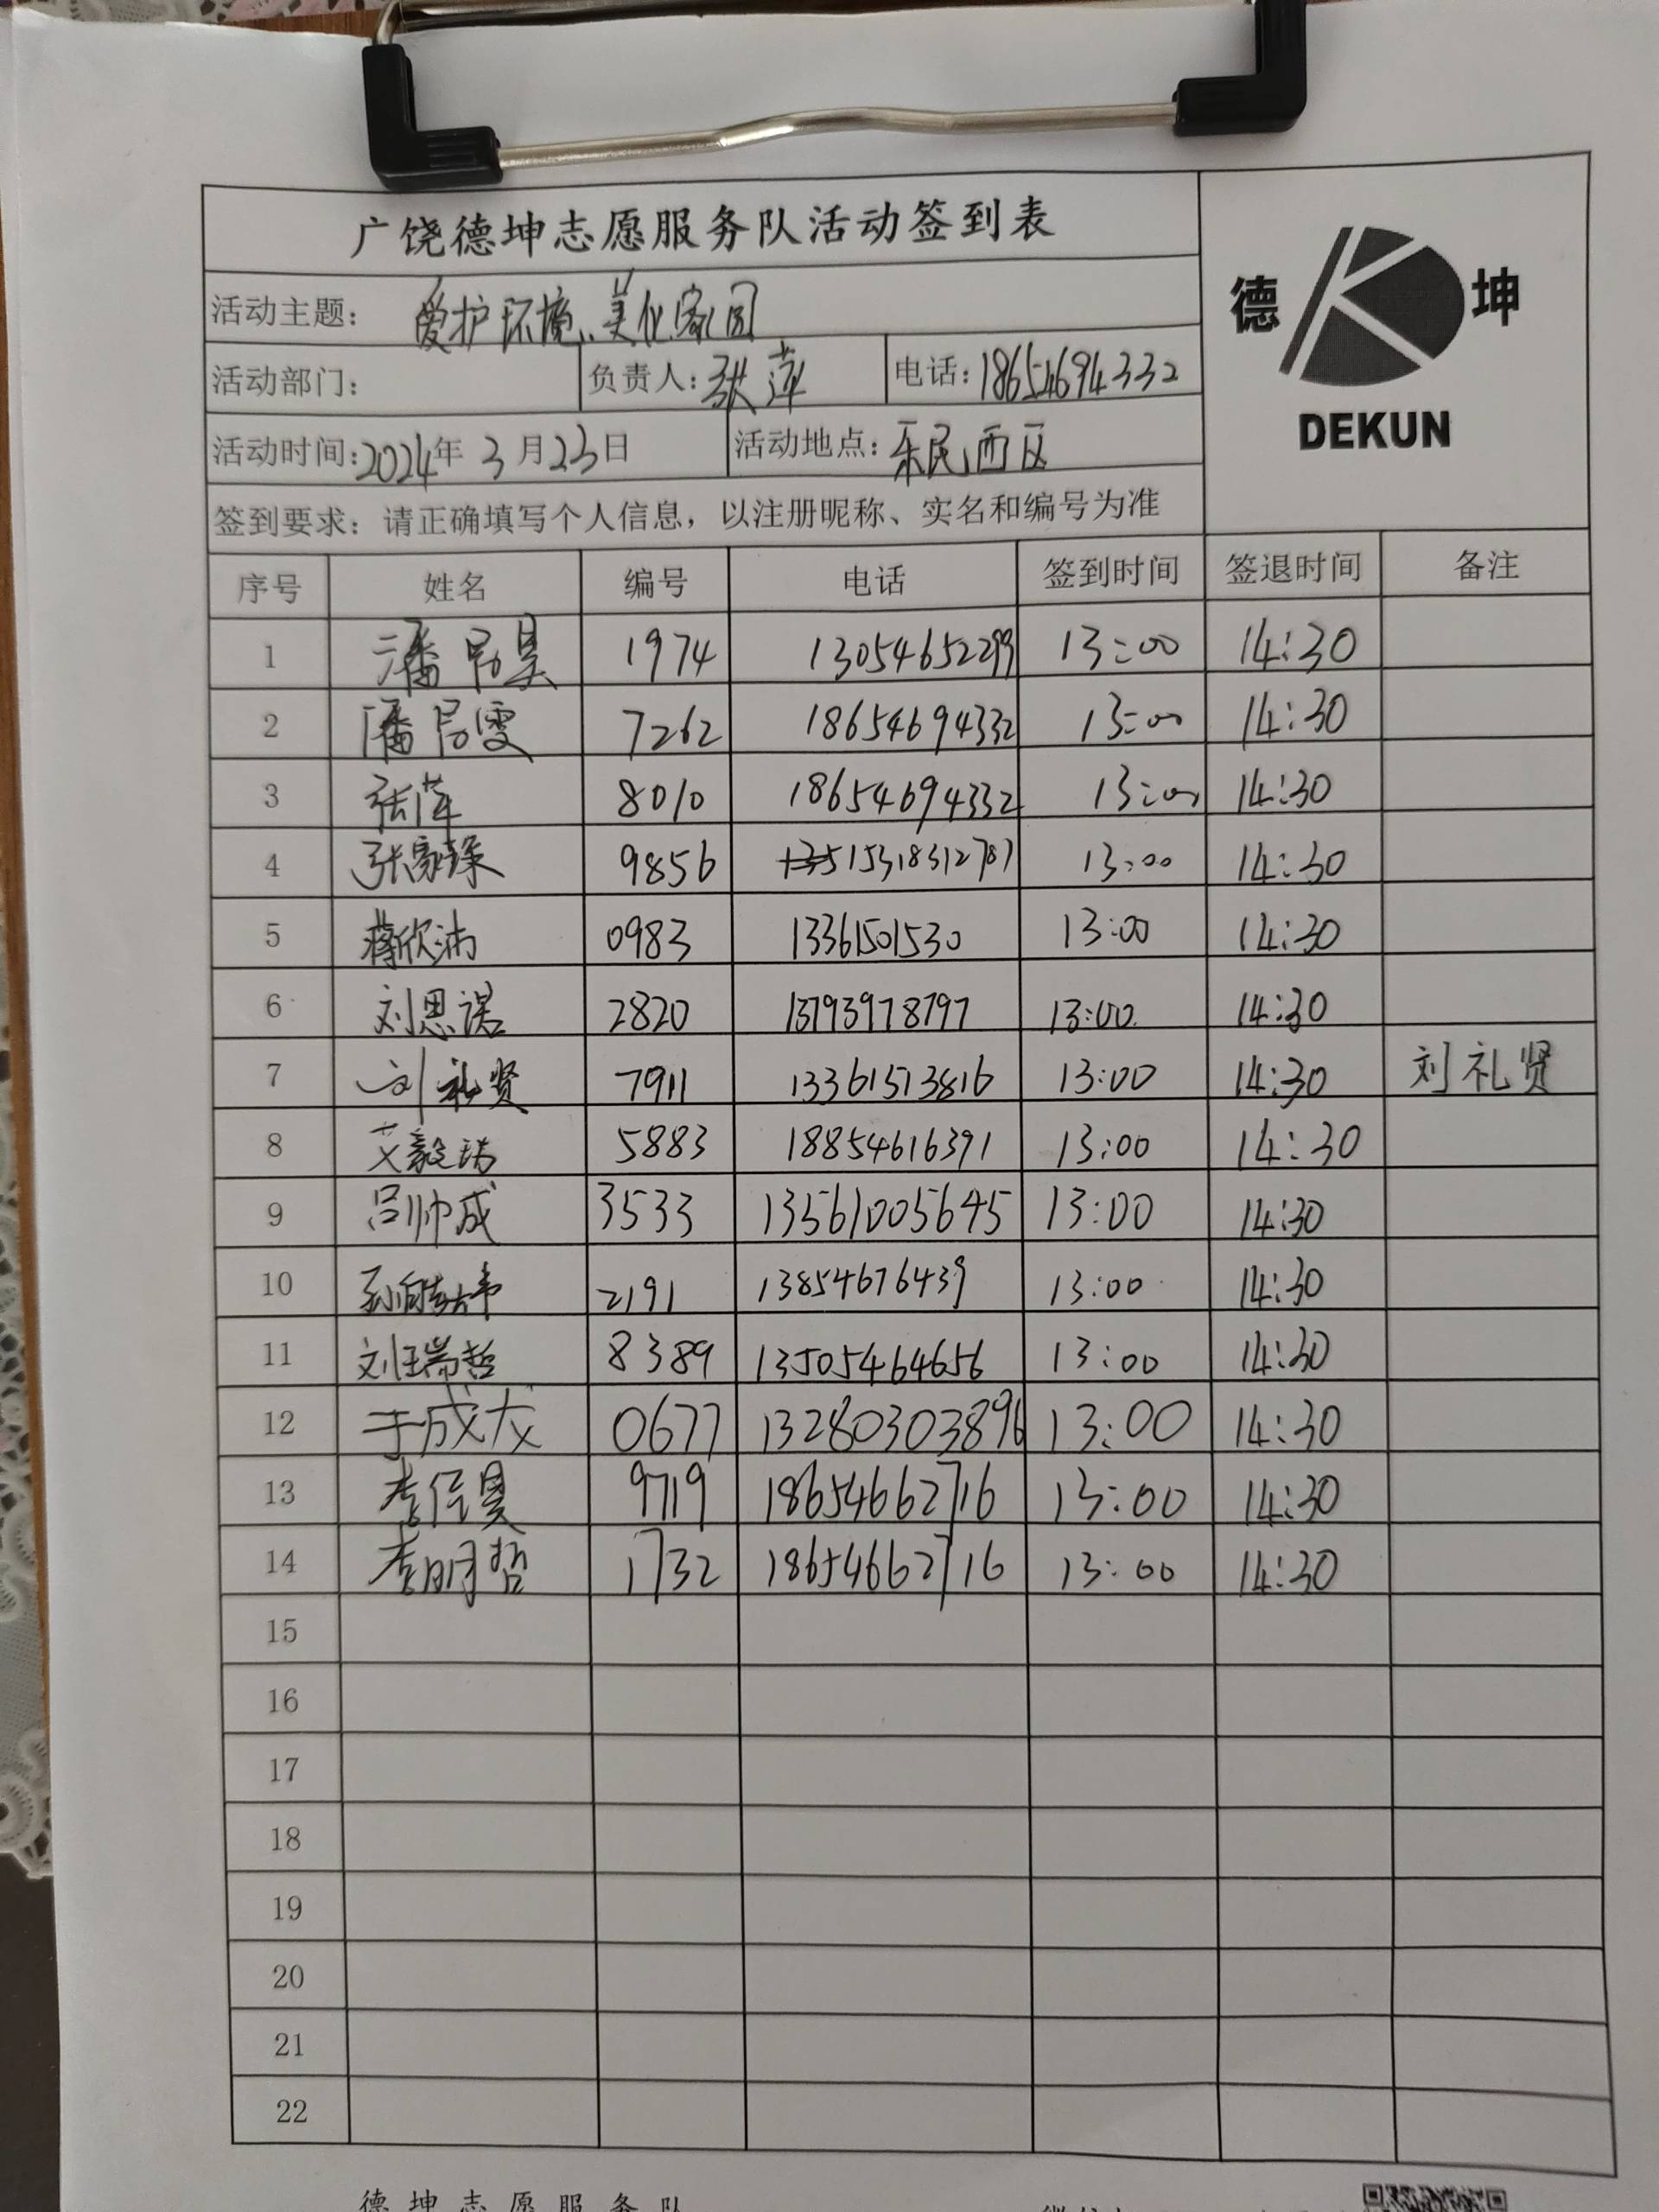 广饶德坤志愿服务队活动签到表
德 坤
DEKUN
活动主题: 爱护环境、美化家园
活动部门: 负责人: 张萍 电话: 18654694332
活动时间: 2024年 3月23日 活动地点: 乐民西区
签到要求: 请正确填写个人信息, 以注册昵称、实名和编号为准
序号 姓名 编号 电话 签到时间 签退时间 备注
1 潘 昊 1974 13054652299 13:00 14:30
2 潘 雯 7262 18654694332 13:00 14:30
3 张萍 8010 18654694332 13:00 14:30
4 张家 9856 15318312787 13:00 14:30
5 蒋欣沛 0983 13361501530 13:00 14:30
6 刘思诺 2820 13793978797 13:00 14:30
7 刘礼贤 7911 13361513816 13:00 14:30 刘礼贤
8 艾毅 5883 18854616391 13:00 14:30
9 吕帅成 3533 13561005645 13:00 14:30
10 孙 2191 13854676439 13:00 14:30
11 刘瑞哲 8389 13505464656 13:00 14:30
12 于成龙 0677 13280303896 13:00 14:30
13 李 昊 9719 18654662716 13:00 14:30
14 李明哲 1732 18654662716 13:00 14:30
15
16
17
18
19
20
21
22
德坤志愿服务队